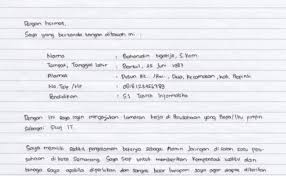 Dengan hormat,
Saya yang bertanda tangan dibawah ini :
Nama : Baharudin S.Kom
Tempat, Tanggal lahir : Bantul, 25 Juni 1987
Alamat : Dusun Rt. /Rw. , Desa, Kecamatan, Kab.
No. Telp /HP : 081812345678
Pendidikan : S1 Teknik Informatika
Dengan ini saya ingin mengajukan lamaran kerja di Perusahaan yang Bapak/Ibu pimpin
sebagai Staf IT.
Saya memiliki sedikit pengalaman bekerja sebagai Admin Jaringan di salah satu peru-
sahaan di kota Semarang. Saya siap untuk memberikan kompetensi waktu dan
tenaga saya apabila diperlukan dan sangat besar harapan saya agar dapat diberikan